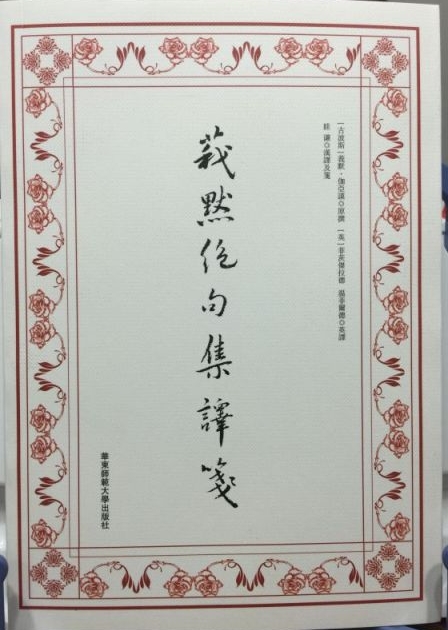 [古波斯]莪默·伽亞謨◎原撰 [英]菲茨傑拉德 溫菲爾德◎英譯
眭謙◎漢譯及箋
莪默絕句集譯箋
華東師範大學出版社